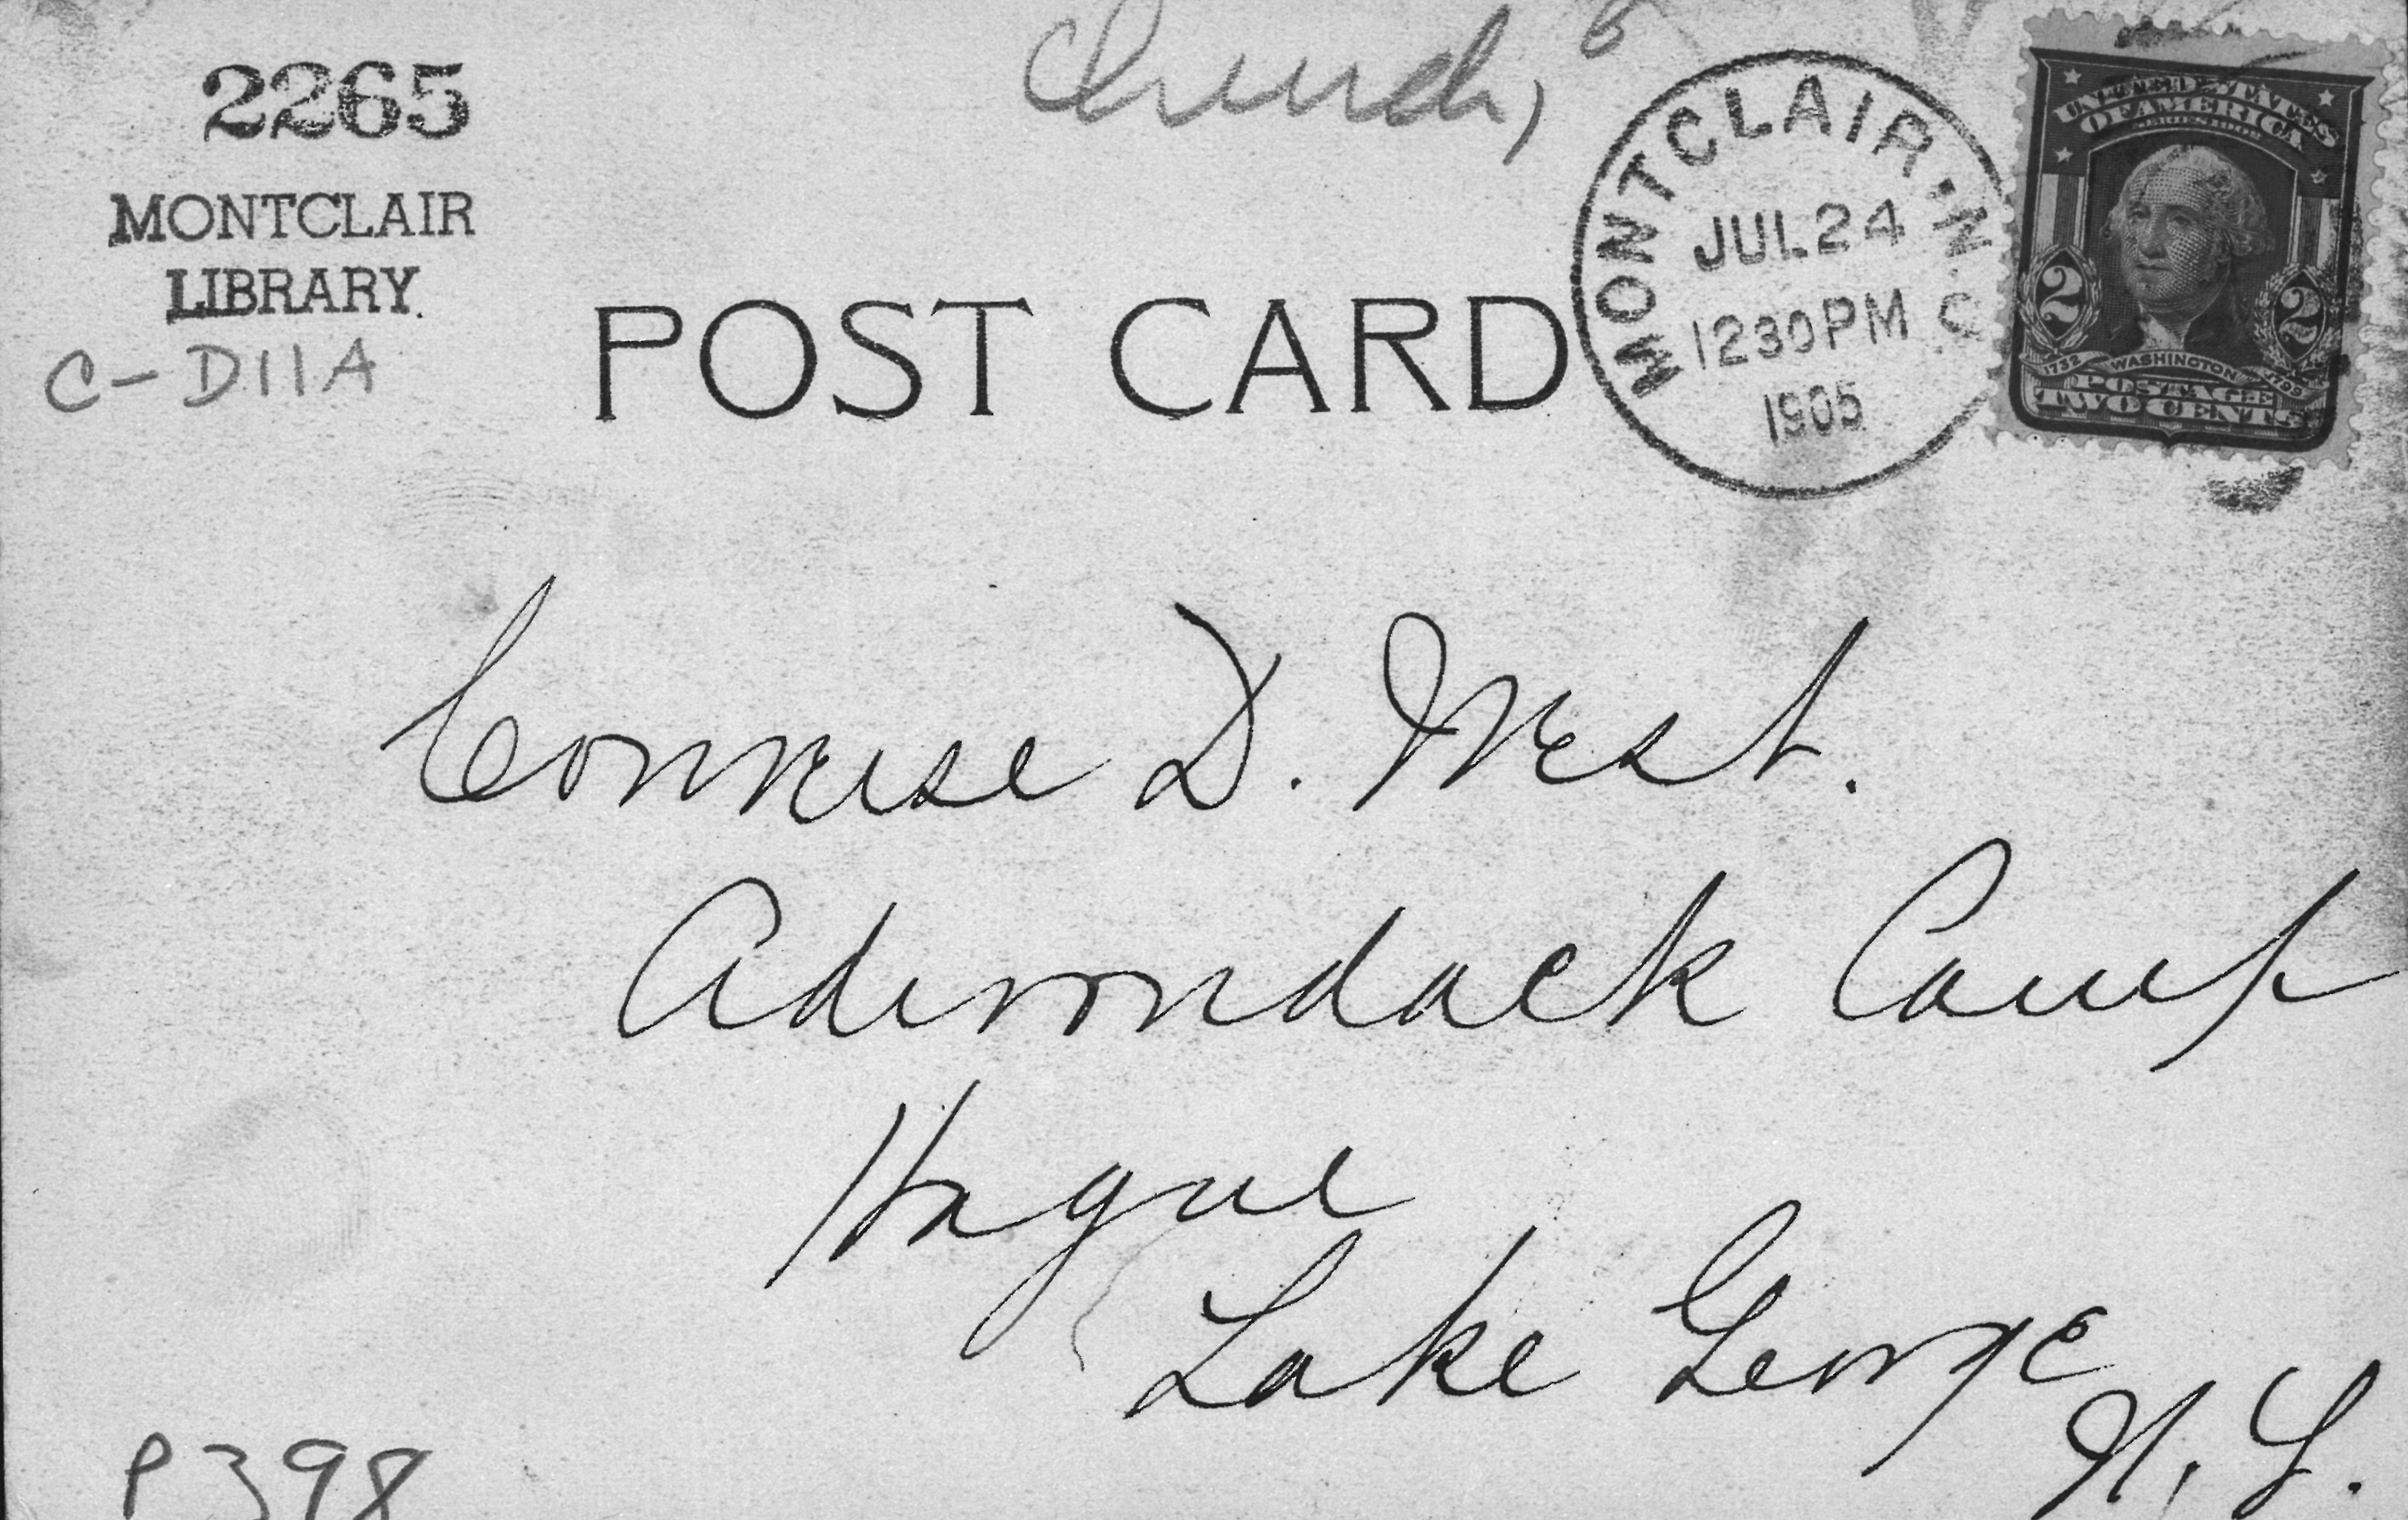 2265
MONTCLAIR
LIBRARY.
C-D11A
Church,
POST CARD
MONTCLAIR, N.
JUL 24
1230 PM
1905
UNITED STATES
OF AMERICA
2 2
1732 WASHINGTON 1799
POSTAGE
TWO CENTS
D. West.
Adirondack Camp
Hague
Lake George
N. Y.
P398